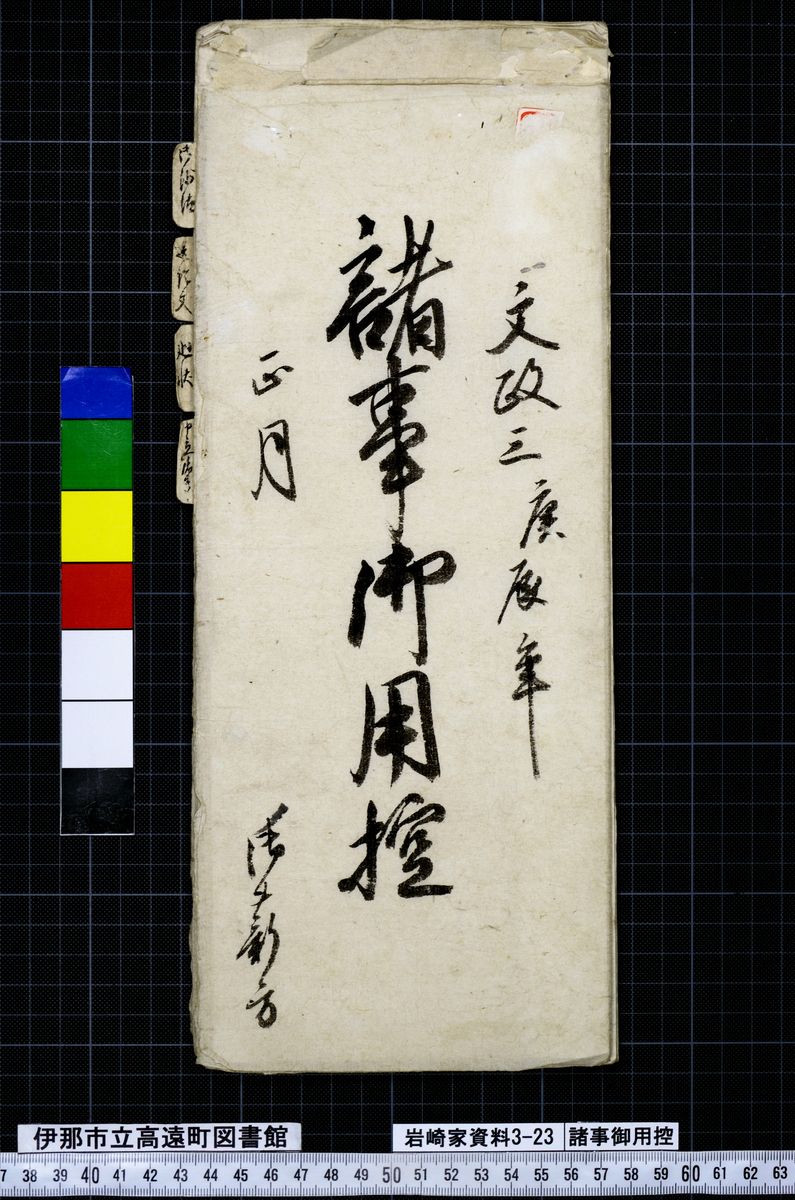 文政三庚辰年
諸事御用控
正月
伊那市立高遠町図書館
岩崎家資料3-23
諸事御用控
7 38 39 40 41 42 43 44 45 46 47 48 49 50 51 52 53 54 55 56 57 58 59 60 61 62 63